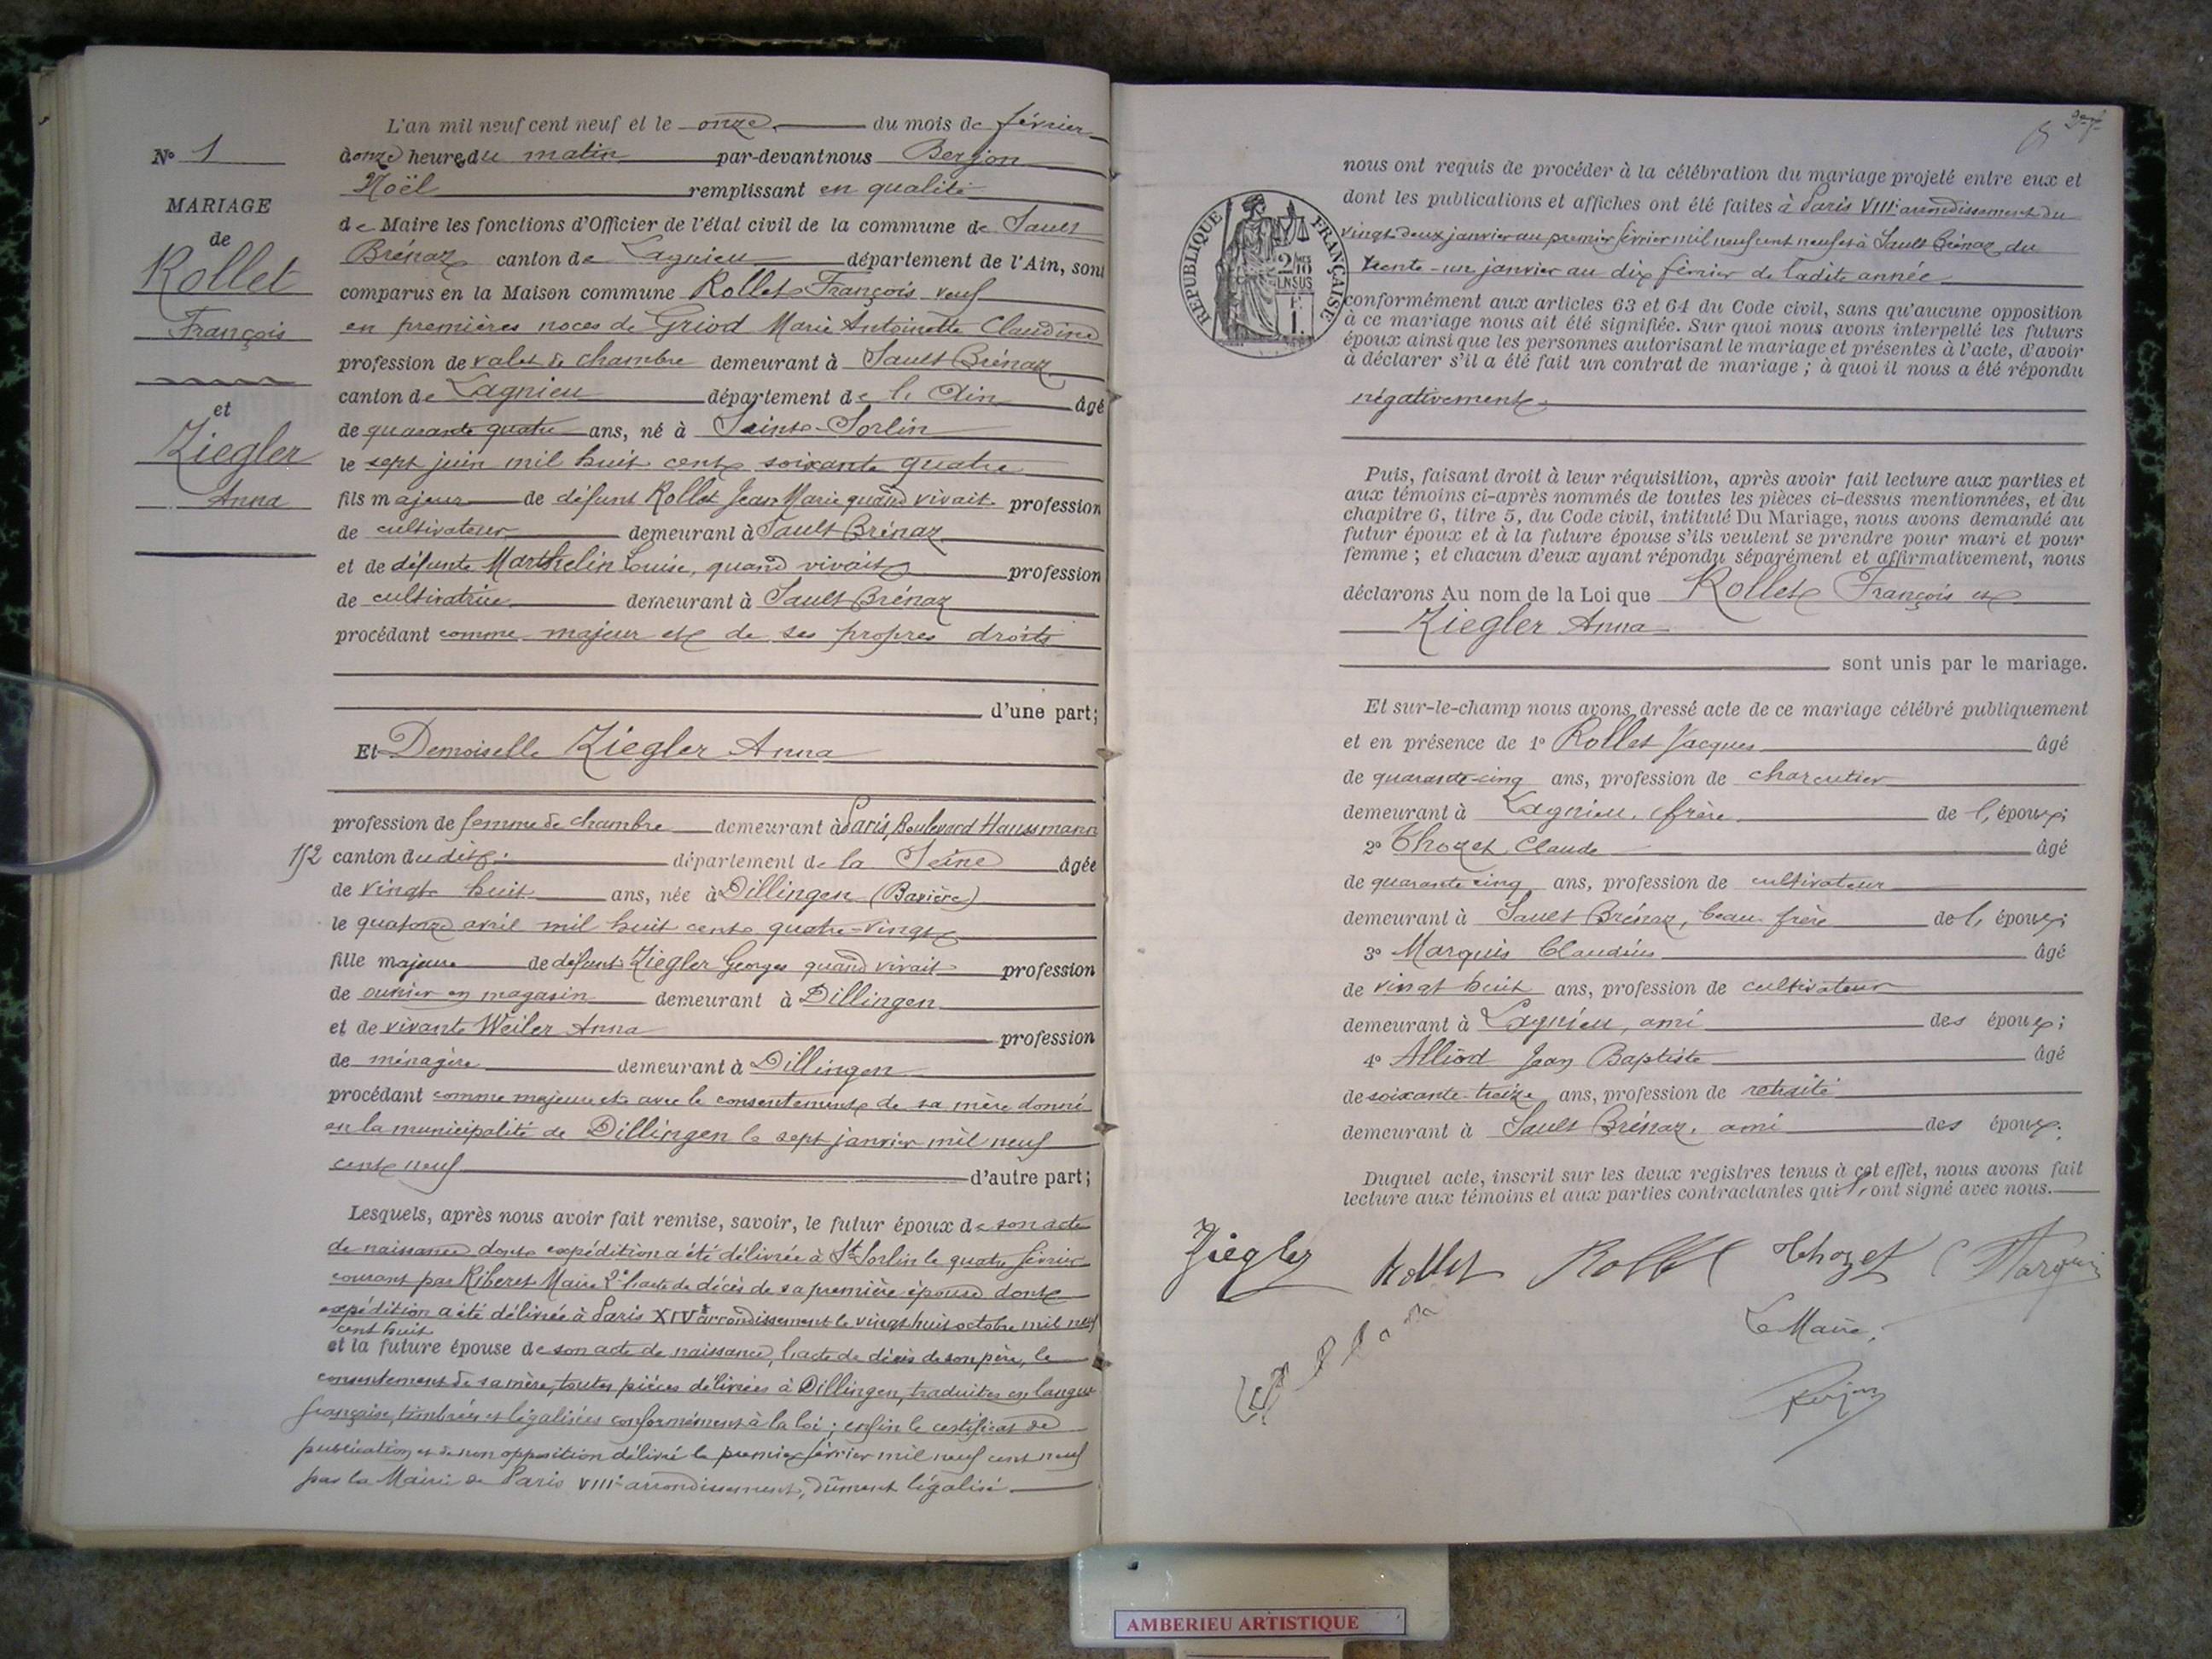 N° 1
MARIAGE
de
Rollet
François
et
Ziegler
Anna
L'an mil neuf cent neuf et le onze du mois de février
à onze heures du matin par-devant nous Berjon
Noël remplissant en qualité
de Maire les fonctions d'Officier de l'état civil de la commune de Sault
Brénaz canton de Lagnieu département de l'Ain, sont
comparus en la Maison commune Rollet François veuf
en premières noces de Griod Marie Antoinette Claudine
profession de valet de chambre demeurant à Sault Brénaz
canton de Lagnieu département de l'Ain âgé
de quarante quatre ans, né à Saint-Sorlin
le sept juin mil huit cent soixante quatre
fils majeur de défunt Rollet Jean Marie quand vivait profession
de cultivateur demeurant à Sault Brénaz
et de défunte Marthelin Louise, quand vivait profession
de cultivatrice demeurant à Sault Brénaz
procédant comme majeur et de ses propres droits
d'une part;
Et Demoiselle Ziegler Anna
profession de femme de chambre demeurant à Paris, Boulevard Haussmann
152 canton du dit département de la Seine âgée
de vingt huit ans, née à Dillingen (Bavière)
le quatorze avril mil huit cent quatre-vingt
fille majeure de défunt Ziegler Georges quand vivait profession
de ouvrier en magasin demeurant à Dillingen
et de vivante Weiler Anna profession
de ménagère demeurant à Dillingen
procédant comme majeure et avec le consentement de sa mère donné
en la municipalité de Dillingen le sept janvier mil neuf
cent neuf d'autre part;
Lesquels, après nous avoir fait remise, savoir, le futur époux de son acte
de naissance dont expédition a été délivrée à St Sorlin le quatre février
courant par Riberet Maire 2° l'acte de décès de sa première épouse dont
expédition a été délivrée à Paris XIVe arrondissement le vingt huit octobre mil neuf
cent huit
et la future épouse de son acte de naissance, l'acte de décès de son père, le
consentement de sa mère, toutes pièces délivrées à Dillingen, traduites en langue
française, timbrées et légalisées conformément à la loi; enfin le certificat de
publication et de non opposition délivré le premier février mil neuf cent neuf
par la Mairie de Paris VIIIe arrondissement, dûment légalisé
nous ont requis de procéder à la célébration du mariage projeté entre eux et
dont les publications et affiches ont été faites à Paris VIIIe arrondissement du
vingt-deux janvier au premier février mil neuf cent neuf et à Sault Brénaz du
trente-un janvier au dix février de ladite année
REPUBLIQUE FRANÇAISE
2/10 EN SUS
1 F.
conformément aux articles 63 et 64 du Code civil, sans qu'aucune opposition
à ce mariage nous ait été signifiée. Sur quoi nous avons interpellé les futurs
époux ainsi que les personnes autorisant le mariage et présentes à l'acte, d'avoir
à déclarer s'il a été fait un contrat de mariage; à quoi il nous a été répondu
négativement.
Puis, faisant droit à leur réquisition, après avoir fait lecture aux parties et
aux témoins ci-après nommés de toutes les pièces ci-dessus mentionnées, et du
chapitre 6, titre 5, du Code civil, intitulé Du Mariage, nous avons demandé au
futur époux et à la future épouse s'ils veulent se prendre pour mari et pour
femme; et chacun d'eux ayant répondu séparément et affirmativement, nous
déclarons Au nom de la Loi que Rollet François et
Ziegler Anna
sont unis par le mariage.
Et sur-le-champ nous avons dressé acte de ce mariage célébré publiquement
et en présence de 1° Rollet Jacques âgé
de quarante-cinq ans, profession de charcutier
demeurant à Lagnieu, frère de l'époux;
2° Thozet Claude âgé
de quarante cinq ans, profession de cultivateur
demeurant à Sault Brénaz, beau frère de l'époux;
3° Marquis Claudius âgé
de vingt huit ans, profession de cultivateur
demeurant à Lagnieu, ami des époux;
4° Alliod Jean Baptiste âgé
de soixante-treize ans, profession de retraité
demeurant à Sault Brénaz, ami des époux.
Duquel acte, inscrit sur les deux registres tenus à cet effet, nous avons fait
lecture aux témoins et aux parties contractantes qui l'ont signé avec nous.
Ziegler Rollet Rollet Thozet C Marquis
Le Maire,
Berjon
AMBERIEU ARTISTIQUE